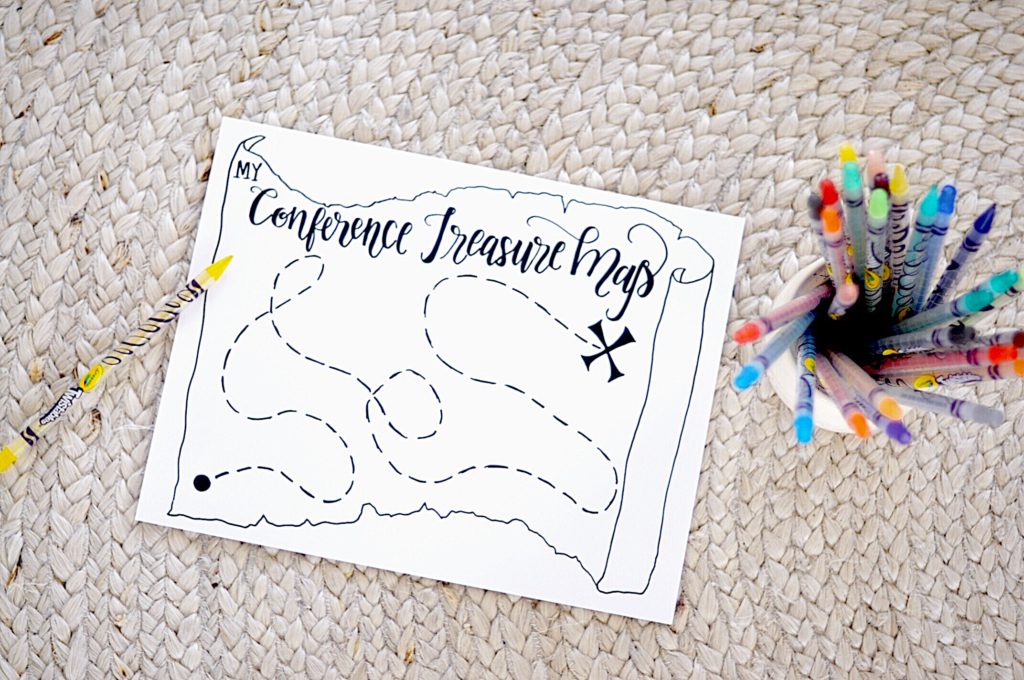 MY
Conference Treasure Map
Crayola
Twistables